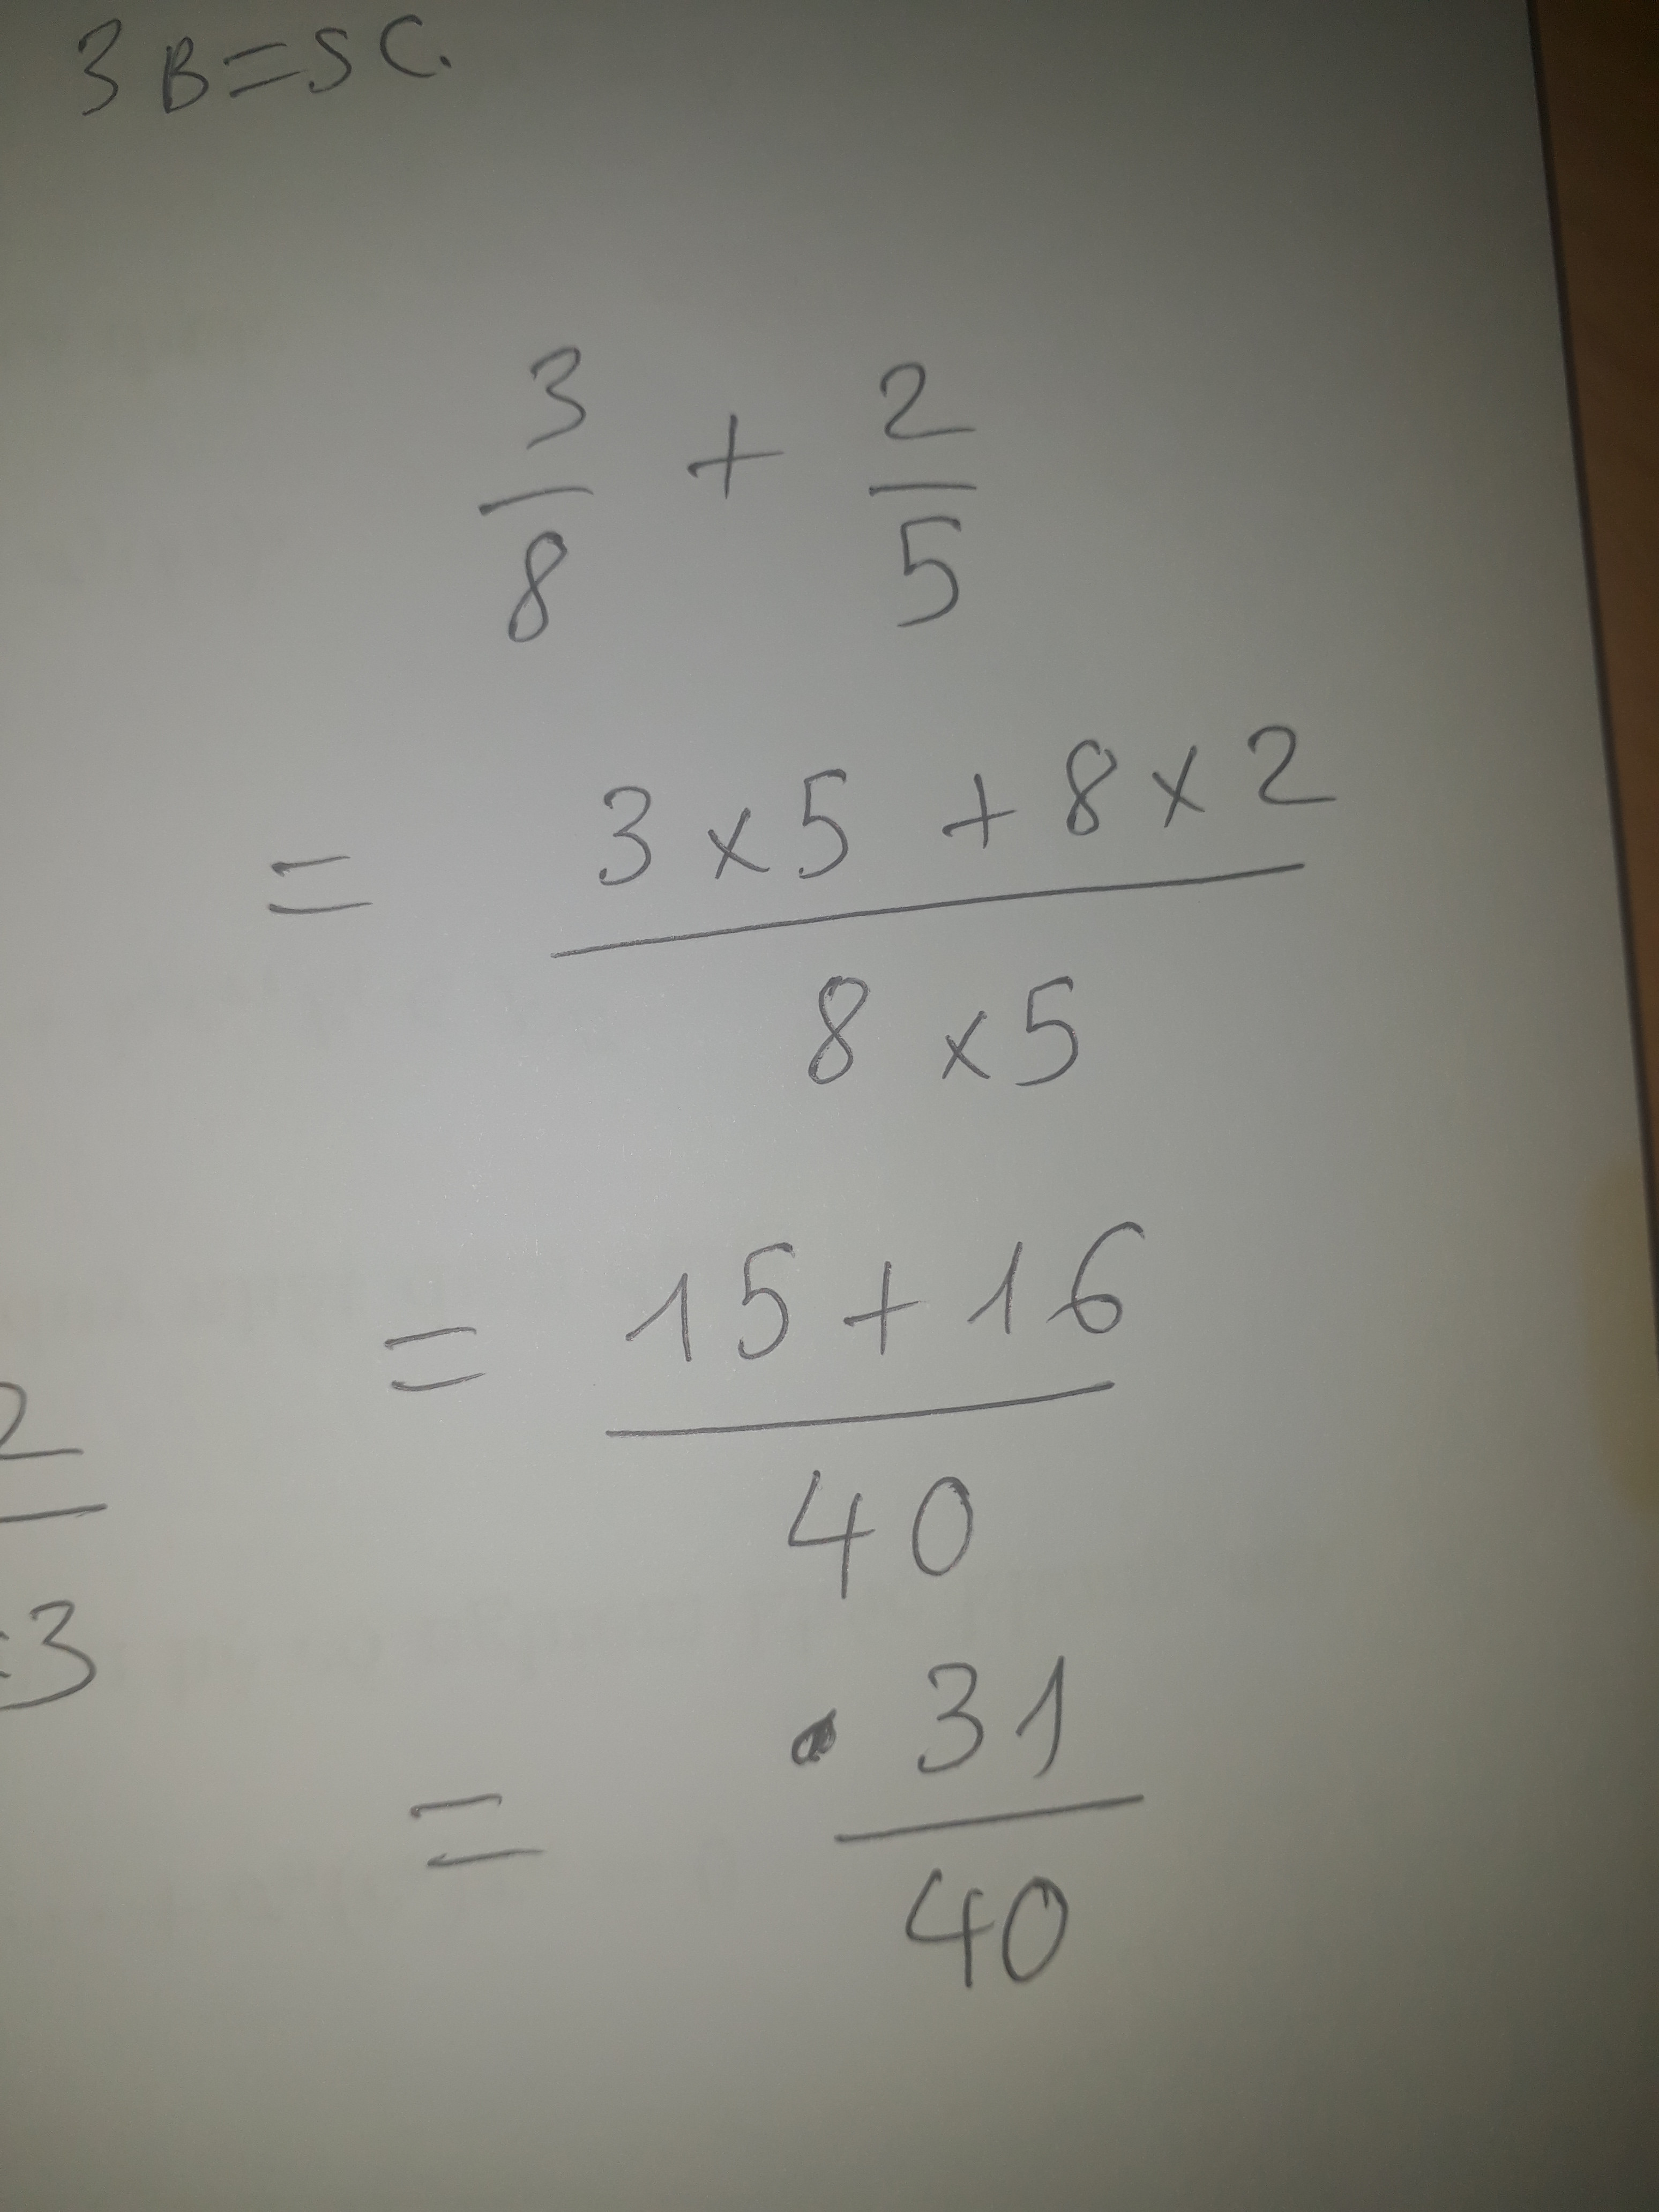 3B=5C.
3/8 + 2/5
= (3×5 + 8×2)/(8×5)
= (15+16)/40
= 31/40
2
3